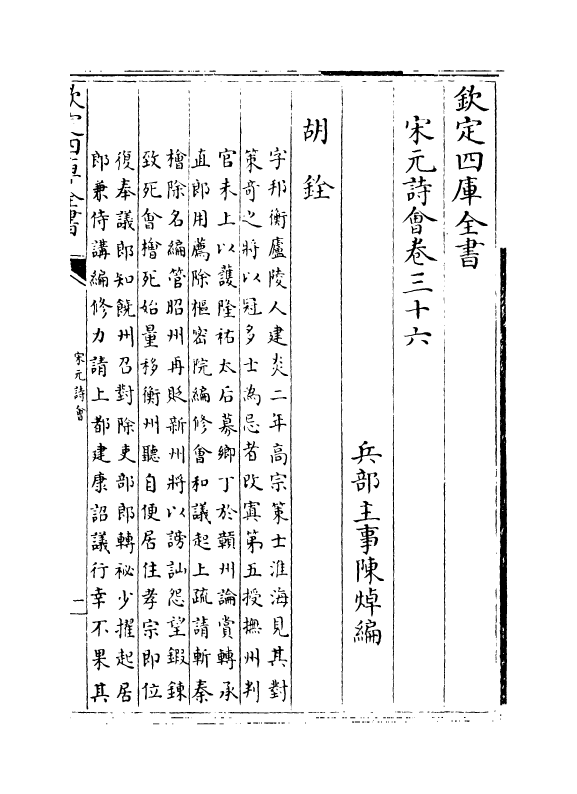 欽定四庫全書
宋元詩會卷三十六
兵部主事陳焯編
胡銓
字邦衡廬陵人建炎二年高宗策士淮海見其對
策奇之將以冠多士為忌者改寘第五授撫州判
官未上以䕶隆祐太后募鄉丁於贑州論賞轉承
直郎用薦除樞密院編修會和議起上疏請斬秦
檜除名編管昭州再貶新州將以謗訕怨望鍜鍊
致死會檜死始量移衡州聽自便居住孝宗即位
復奉議郎知饒州召對除吏部郎轉祕少擢起居
郎兼侍講編修力請上都建康詔議行幸不果其
欽定四庫全書
宋元詩會
一